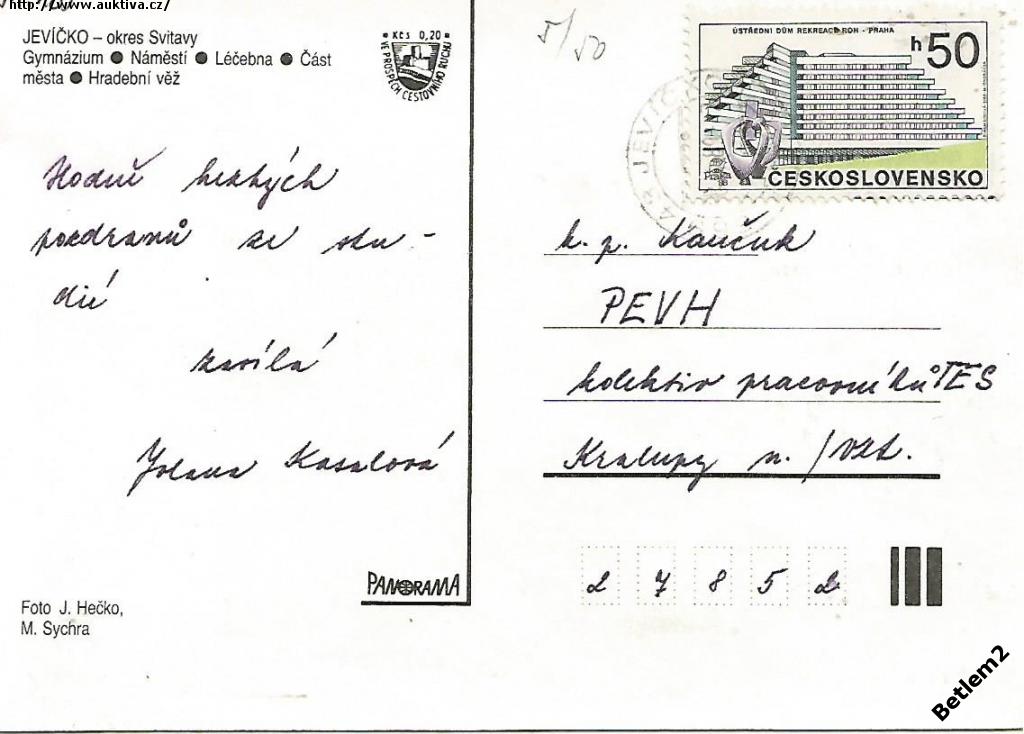 http://www.auktiva.cz/
JEVÍČKO – okres Svitavy
Gymnázium ● Náměstí ● Léčebna ● Část
města ● Hradební věž
Kčs 0,20
VE PROSPĚCH CESTOVNÍHO RUCHU
5/50
ÚSTŘEDNÍ DŮM REKREACE ROH - PRAHA
h 50
Praha 88
ČESKOSLOVENSKO
JEVÍČKO
Hodně hezkých
pozdravů ze stu-
dií
zasílá
Jolana Kasalová
k. p. Kaučuk
PEVH
kolektiv pracovníků TES
Kralupy n. /Vlt.
27852
PANORAMA
Foto J. Hečko,
M. Sychra
Betlem2